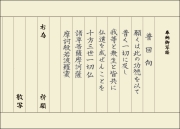 奉納御写経
普回向
願くは此の功徳を以て
普く一切に及し
我等と衆生と皆共に
仏道を成ぜんことを
十方三世一切仏
諸尊菩薩摩訶薩
摩訶般若波羅蜜
為
祈願
敬写